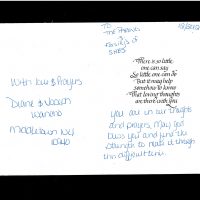 To
The Parents
&
Families of
SHES
With Love & Prayers
Diane &
Middletown NY
10940
There is so little
one can say
So little one can do
But it may help
somehow to know
That loving thoughts
are there with you
You are in our thoughts
and prayers, May God
bless you and give you
strength to make it through
this difficult time.